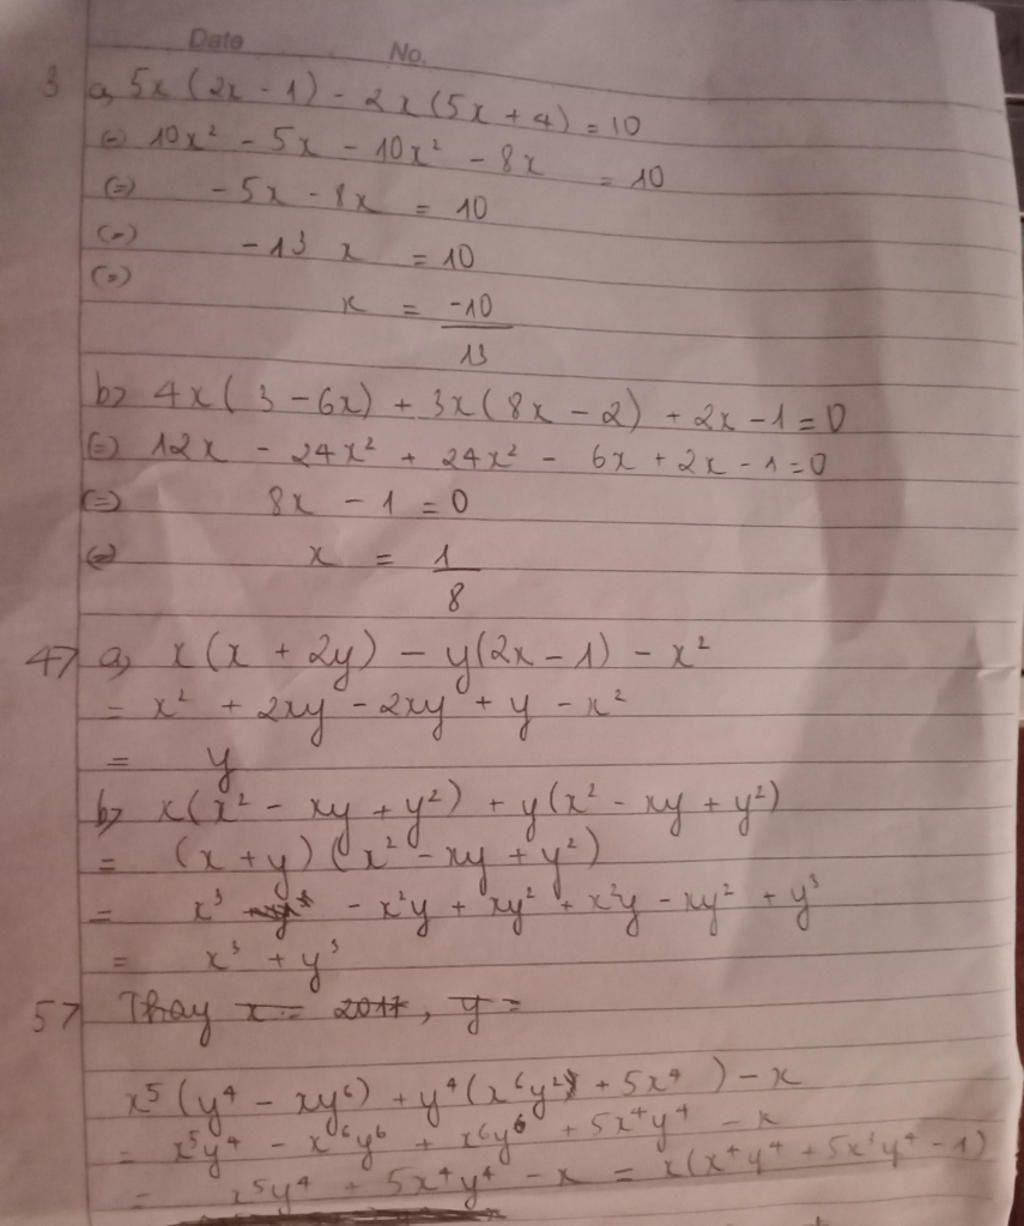 Date No.
3 a, 5x (2x - 1) - 2x (5x + 4) = 10
(=) 10x² - 5x - 10x² - 8x = 10
(=) - 5x - 8x = 10
(=) - 13 x = 10
(=)
x = -10/13
b> 4x ( 3 - 6x) + 3x (8x - 2) + 2x - 1 = 0
(=) 12x - 24x² + 24x² - 6x + 2x - 1 = 0
(=) 8x - 1 = 0
(=) x = 1/8
4> a, x (x + 2y) - y(2x - 1) - x²
= x² + 2xy - 2xy + y - x²
= y
b> x(x² - xy + y²) + y(x² - xy + y²)
= (x + y) (x² - xy + y²)
= x³ - x²y + xy² + x²y - xy² + y³
= x³ + y³
5> Thay x = 2017, y =
x⁵ (y⁴ - xy⁶) + y⁴ (x⁶y² + 5x⁴ ) - x
= x⁵y⁴ - x⁶y⁶ + x⁶y⁶ + 5x⁴y⁴ - x
= x⁵y⁴ + 5x⁴y⁴ - x = x(x⁴y⁴ + 5x³y⁴ - 1)